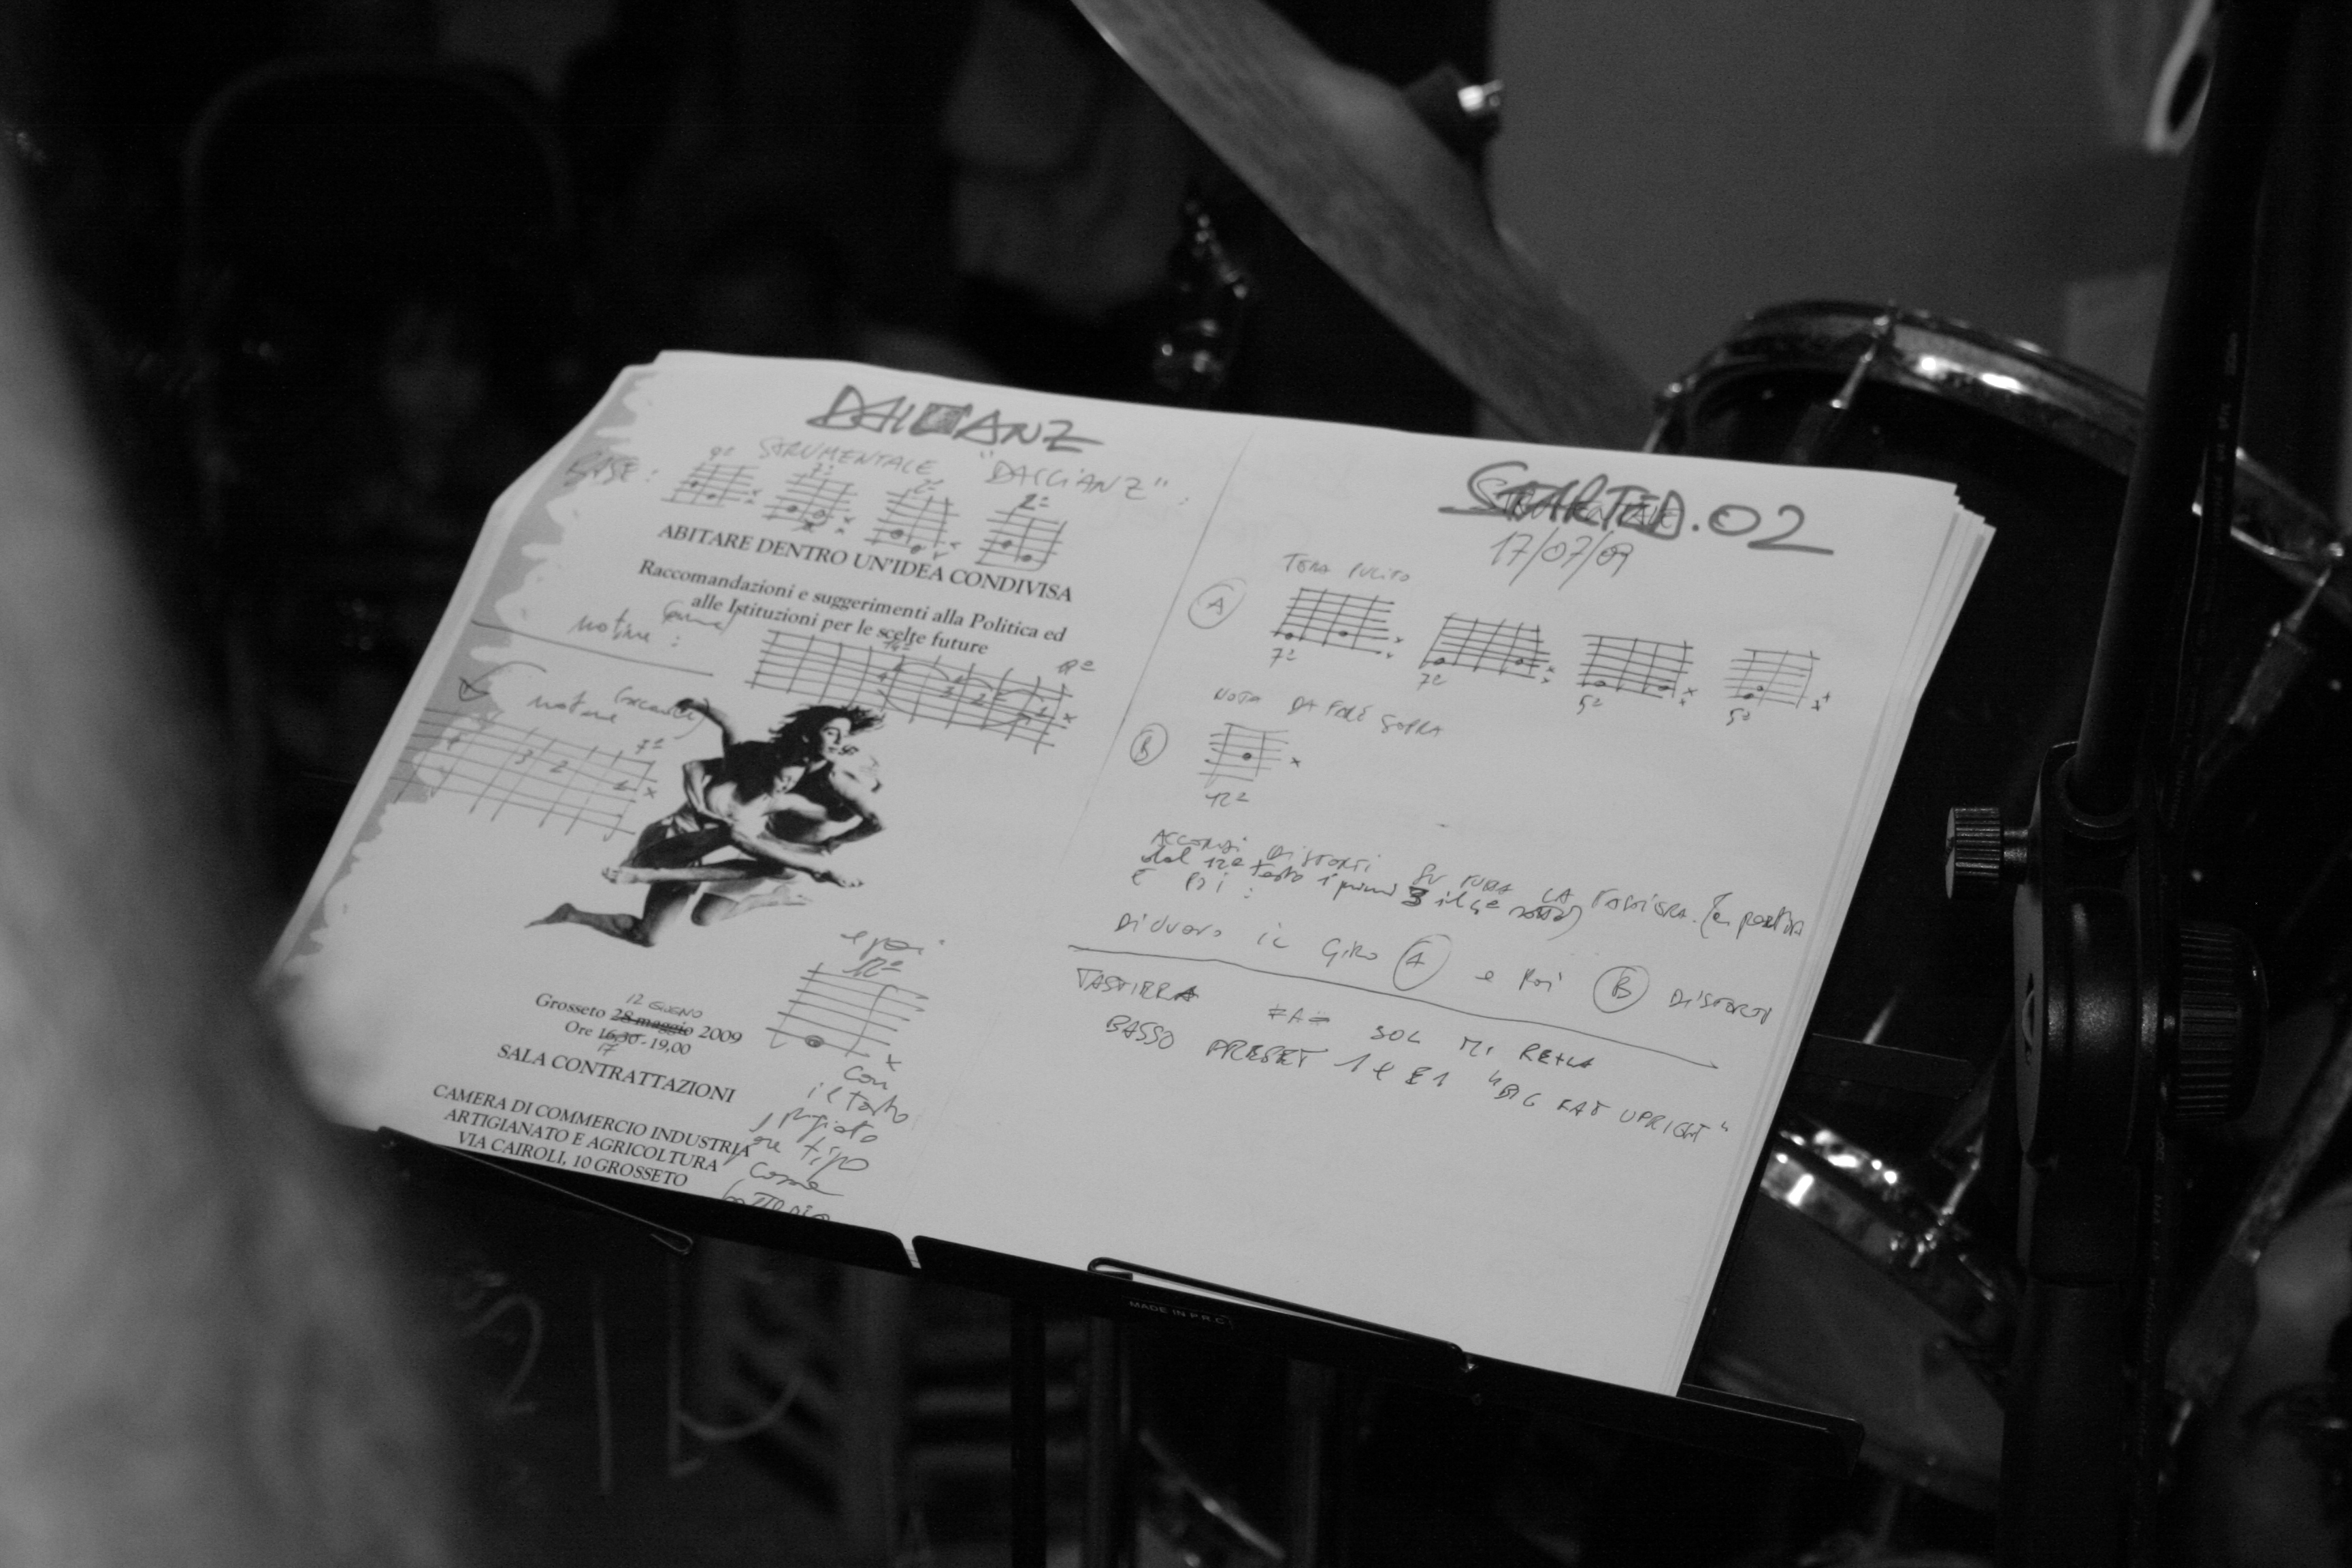 STRUMENTALE "DACCIANZ":
BASE:
9ª 7ª 2ª 2ª
ABITARE DENTRO UN'IDEA CONDIVISA
Raccomandazioni e suggerimenti alla Politica ed
alle Istituzioni per le scelte future
notine
:
14ª
7ª
4 3 2 1 x
e poi
12ª
x
con
il tasto
come
12 GIUGNO
Grosseto 28 maggio 2009
Ore 16,30 - 19,00
17
SALA CONTRATTAZIONI
CAMERA DI COMMERCIO INDUSTRIA
ARTIGIANATO E AGRICOLTURA
VIA CAIROLI, 10 GROSSETO
STARTED.02
17/07/09
TEMA PULITO
A
7ª 7ª 5ª 5ª
NOTA DA FARE SOPRA
B
12ª
x
ACCORDI DISTORTI SU TUTTA LA TASTIERA.
dal 12º tasto i primi 3 il 4º
E POI:
DI NUOVO IL GIRO A e poi B DISTORTI
TASTIERA SOL MI RE LA
BASSO PRESET 1 "BIG FAT UPRIGHT"
MADE IN P.R.C.